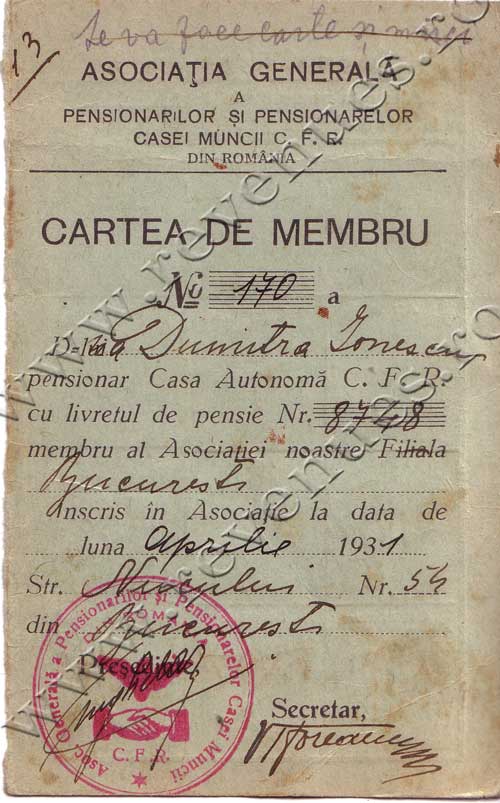 Se va face carte și
13
ASOCIAŢIA GENERALĂ
A
PENSIONARILOR ŞI PENSIONARELOR
CASEI MUNCII C. F. R.
DIN ROMÂNIA
CARTEA DE MEMBRU
No 170 a
D-na Dumitra Ionescu
pensionar Casa Autonomă C. F. R.
cu livretul de pensie Nr. 8748
membru al Asociaţiei noastre Filiala
Bucuresti
înscris în Asociaţie la data de
luna Aprilie 1931
Str. Nucului Nr. 54
din Bucuresti
Preşedinte,
Secretar,
Asoc. Generală a Pensionarilor şi Pensionarelor Casei Muncii
DIN ROMÂNIA
C. F. R.
www.revenues.ro
www.revenues.ro
www.revenues.ro